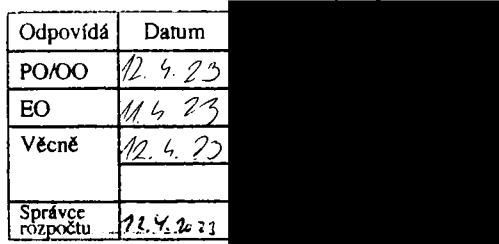 Odpovídá Datum
PO/OO 12. 4. 23
EO 11. 4 23
Věcně 12. 4. 23
Správce
rozpočtu 12. 4. 2023